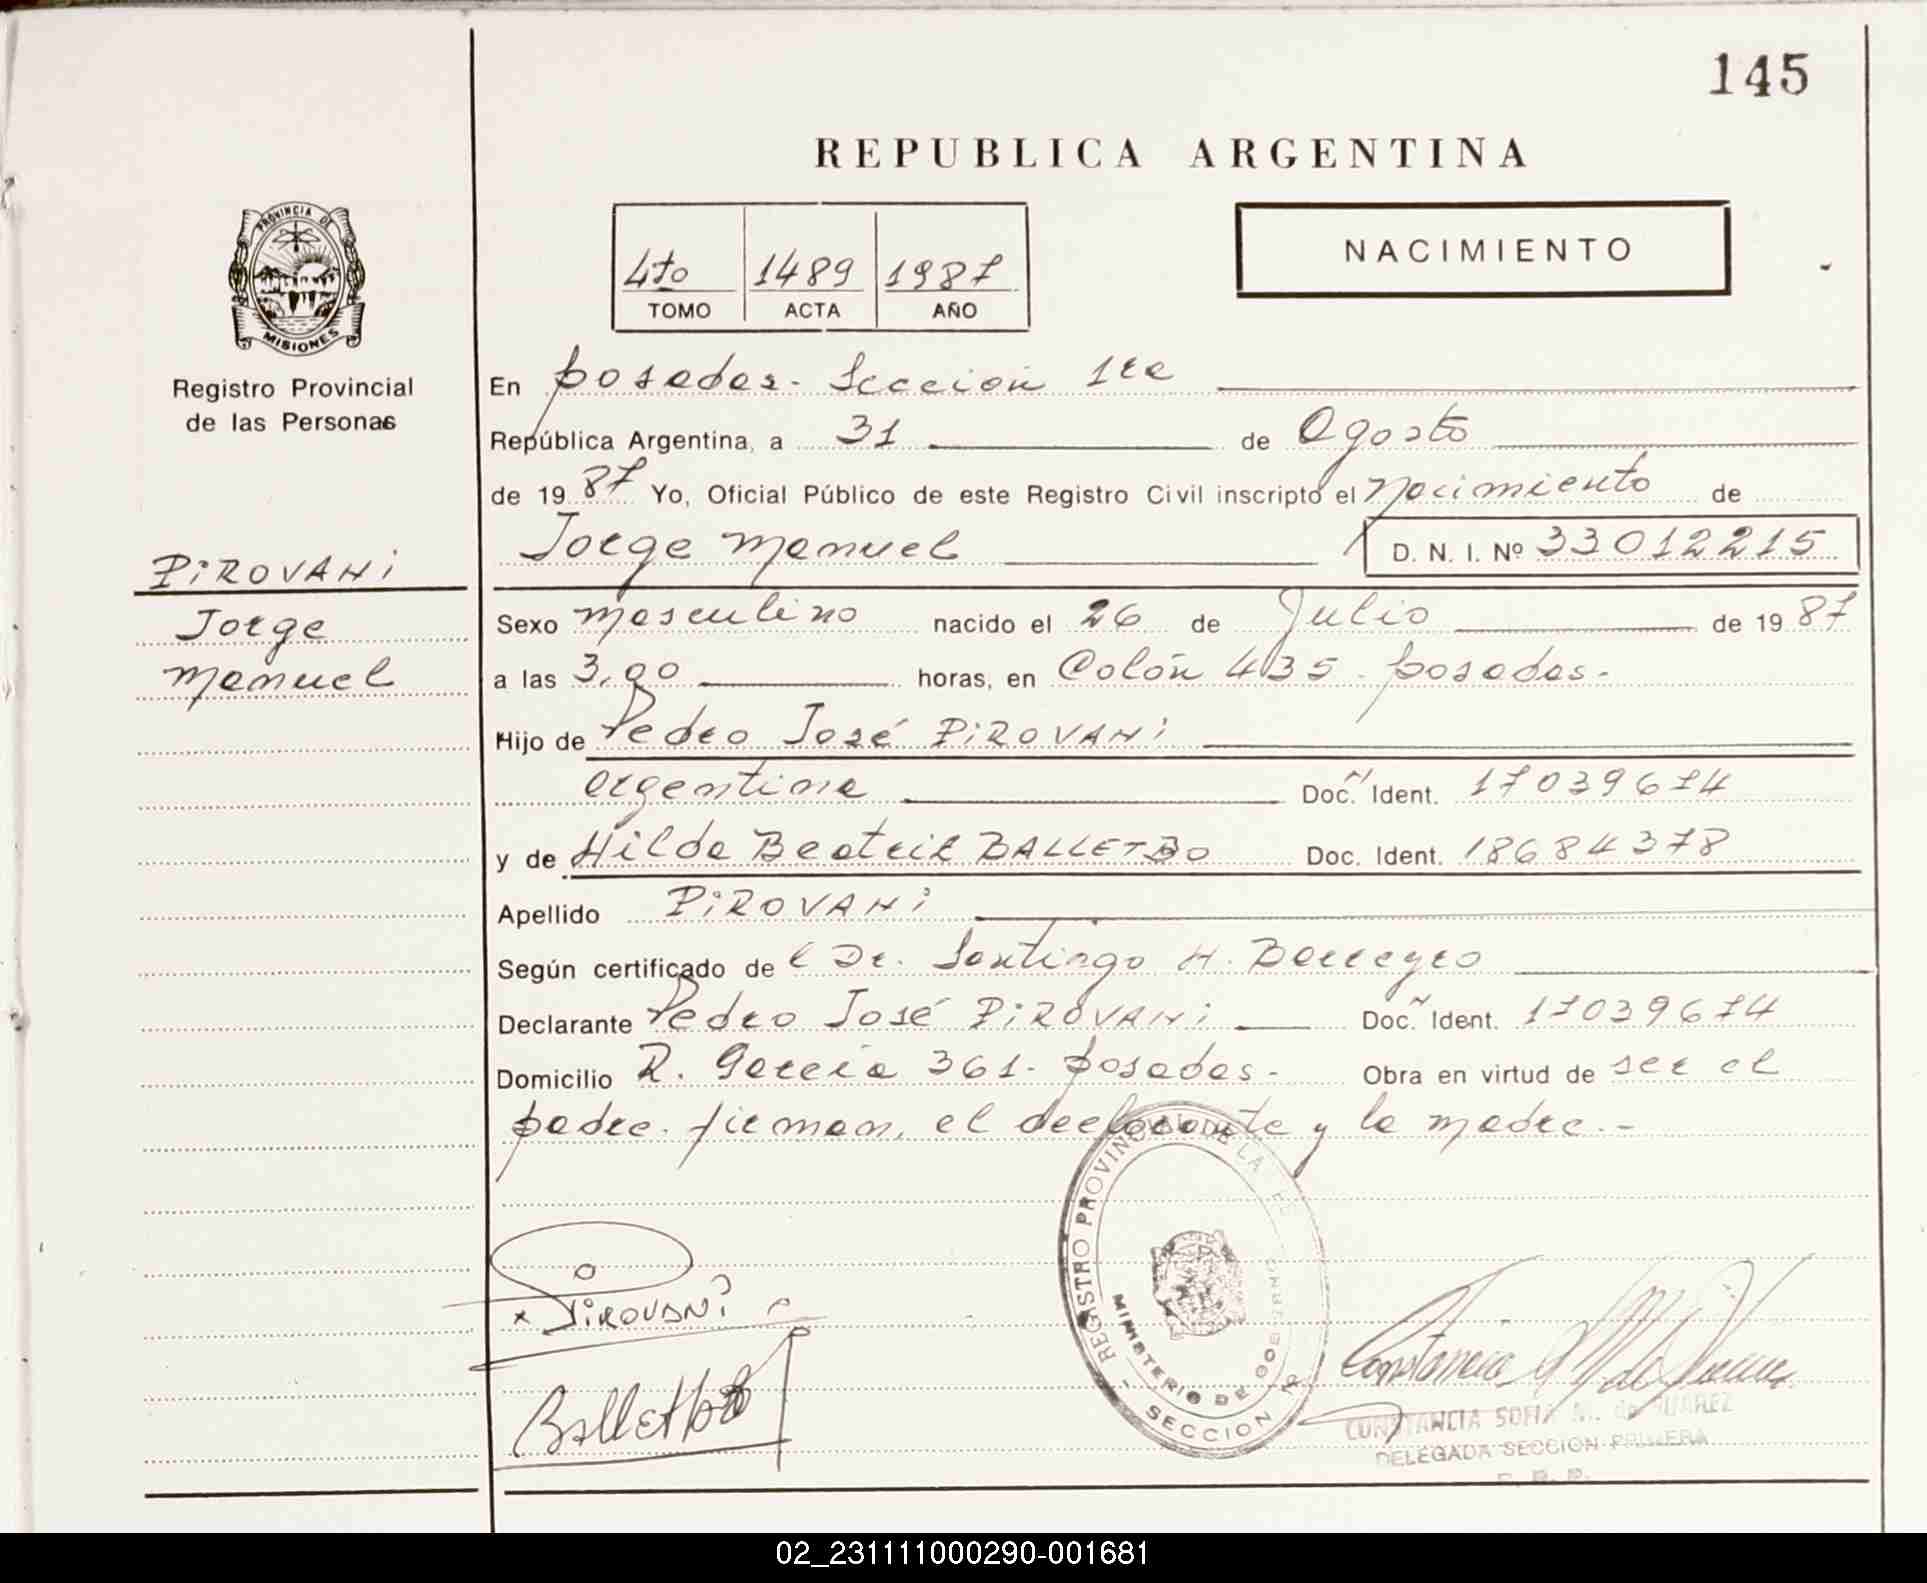 145
REPUBLICA ARGENTINA
PROVINCIA DE
MISIONES
Registro Provincial
de las Personas
4to 1489 1987
TOMO ACTA AÑO
NACIMIENTO
En Posadas - Sección 1ra
República Argentina, a 31 de Agosto
de 19 87 Yo, Oficial Público de este Registro Civil inscripto el Nacimiento de
Jorge Manuel D. N. I. Nº 33012215
PIROVANI
Jorge
Manuel
Sexo Masculino nacido el 26 de Julio de 19 87
a las 3,00 horas, en Colón 435 - Posadas.-
Hijo de Pedro José PIROVANI
argentina Doc. Ident. 17039674
y de Hilda Beatriz BALLETBO Doc. Ident. 18684378
Apellido PIROVANI
Según certificado del Dr. Santiago H. Barreyro
Declarante Pedro José PIROVANI Doc. Ident. 17039674
Domicilio R. García 361 - Posadas - Obra en virtud de ser el
padre. firman, el declarante y la madre.-
REGISTRO PROVINCIAL DE LA
MINISTERIO DE GOBIERNO
SECCION
PIROVANI
Balletbó
CONSTANCIA SOFIA M. de SUAREZ
DELEGADA SECCION PRIMERA
02_231111000290-001681